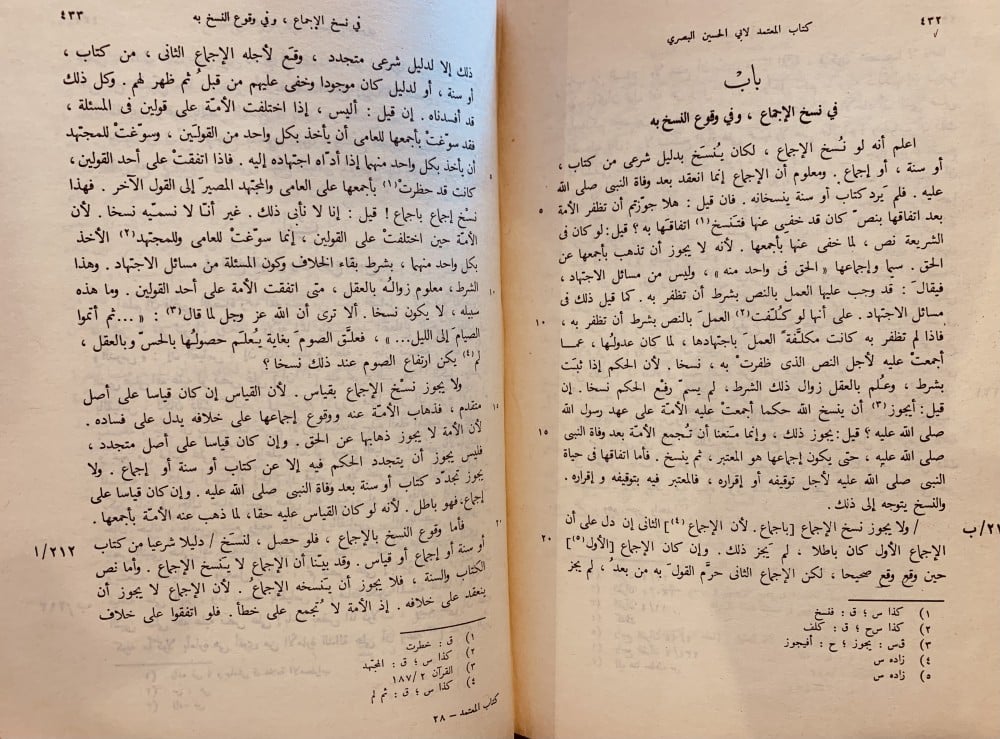 ٤٣٢
كتاب المعتمد لابي الحسين البصري
باب
في نسخ الإجماع ، وفي وقوع النسخ به
اعلم أنه لو نُسخ الإجماع ، لكان يُنسَخ بدليل شرعى من كتاب ،
أو سنة ، أو إجماع . ومعلوم أن الإجماع إنما انعقد بعد وفاة النبى صلى الله
عليه . فلم يَرِد كتاب أو سنة ينسخانه . فان قيل : هلا جوّزتم أن تظفر الأمة
٥
بعد اتفاقها بنصّ كان قد خفىَ عنها فتَنسخ(١) اتفاقَها به ؟ قيل : لو كان فى
الشريعة نص ، لما خفى عنها بأجمعها . لأنه لا يجوز أن تذهب بأجمعها عن
الحق . سيما وإجماعها « الحق فى واحد منه » ، وليس من مسائل الاجتهاد ،
فيقالَ : قد وجب عليها العمل بالنص بشرط أن تظفر به . كما قيل ذلك فى
مسائل الاجتهاد . على أنها لو كُلّفت(٢) العملَ بالنص بشرط أن تظفر به ،
١٠
فاذا لم تظفر به كانت مكلَّفةً العملَ باجتهادها ، لما كان عدولُها ، عمـا
أجمعتْ عليه لأجل النص الذى ظفرتْ به ، نسخا . لأن الحكم إذا ثبَتَ
بشرط ، وعُلم بالعقل زوال ذلك الشرط ، لم يسمّ رفْع الحكم نسخا . إن
قيل : أيجوز(٣) أن ينسخ الله حكما أجمعتْ عليه الأمّة على عهد رسول الله
صلى الله عليه ؟ قيل : يجوز ذلك ، وإنما منَعنا أن تُجمع الأمّة بعد وفاة النبى
١٥
صلى الله عليه ، حتى يكون إجماعها هو المعتبر ، ثم ينسخ . فأما اتفاقها فى حياة
النبى صلى الله عليه لأجل توقيفه أو إقراره ، فالمعتبر فيه بتوقيفه و إقراره .
والنسخ يتوجه إلى ذلك .
/ ولا يجوز نسخ الإجماع [ باجماع . لأن الإجماع (٤)] الثانى إن دل على أن
الإجماع الأول كان باطلا ، لم يَجز ذلك . وإن كان الإجماع [الأول(٥)]
٢٠
حين وقع وقع صحيحا ، لكن الإجماع الثانى حرَّم القولَ به من بعدُ ، لم يجز
١) كذا س ؛ ق : فنسخ
٢) كذا س ح ؛ ق : كلف
٣) ق س : يجوز ؛ ح : أفيجوز
٤) زاده س
٥) زاده س
في نسخ الإجماع ، وفي وقوع النسخ به
٤٣٣
ذلك إلا لدليل شرعى متجدد ، وقعَ لأجله الإجماع الثانى ، من كتاب ،
أو سنة ، أو لدليل كان موجودا وخفى عليهم من قبلُ ثم ظهر لهم . وكل ذلك
قد أفسدناه . إن قيل : أليس ، إذا اختلفت الأمّة على قولين فى المسئلة ،
فقد سوّغتْ بأجمعها للعامى أن يأخذ بكل واحد من القولَين ، وسوّغتْ للمجتهد
أن يأخذ بكل واحد منهما إذا أدّاه اجتهاده إليه . فاذا اتفقتْ على أحد القولين ،
كانت قد حظرتْ(١) بأجمعها على العامى والمجتهد المصيرَ إلى القول الآخر . فهذا
نسْخ إجماع باجماع ! قيل : إنا لا نأبى ذلك . غير أنّا لا نسمّيه نسخا . لأن
الأمّة حين اختلفتْ على القولين ، إنما سوّغتْ للعامى وللمجتهد(٢) الأخذ
بكل واحد منهما ، بشرط بقاء الخلاف وكون المسئلة من مسائل الاجتهاد . وهذا
١٠
الشرط ، معلوم زوالُه بالعقل ، متى اتفقت الأمة على أحد القولين . وما هذه
سبيله ، لا يكون نسخا . ألا ترى أن الله عز وجل لما قال(٣) : « ... ثم أتموا
الصيامَ إلى الليل... » ، فعلَّق الصومَ بغاية يُعلَم حصولُها بالحسّ وبالعقل ،
لم(٤) يكن ارتفاع الصوم عند ذلك نسخا ؟
ولا يجوز نسْخ الإجماع بقياس . لأن القياس إن كان قياسا على أصل
١٥
متقدم ، فذهاب الأمّة عنه ووقوع إجماعها على خلافه يدل على فساده .
لأن الأمة لا يجوز ذهابها عن الحق . وإن كان قياسا على أصل متجدد ،
فليس يجوز أن يتجدد الحكم فيه إلا عن كتاب أو سنة أو إجماع . ولا
يجوز تجدّد كتاب أو سنة بعد وفاة النبى صلى الله عليه . وإن كان قياسا على
إجماع فهو باطل . لأنه لو كان القياس عليه حقا ، لما ذهب عنه الأمّة بأجمعها .
٢٠
فأما وقوع النسخ بالإجماع ، فلو حصل ، لنسَخ / دليلا شرعيا من كتاب
١/٢١٢
أو سنة أو إجماع أو قياس . وقد بينّا أن الإجماع لا يَنسخ الإجماع . وأما نص
الكتاب والسنة ، فلا يجوز أن ينسخه الإجماعُ . لأن الإجماع لا يجوز أن
ينعقد على خلافه . إذ الأمّة لا تُجمع على خطأ . فلو اتفقوا على خلاف
١) ق : خطرت
٢) كذا س ؛ ق : المجتهد
٣) القرآن ١٨٧/٢
٤) كذا س ؛ ق : ثم لم
كتاب المعتمد – ٢٨